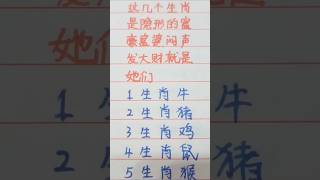 这几个生肖
是隐形的富
豪富婆闷声
发大财就是
她们
1生肖牛
2生肖猪
3生肖鸡
4生肖鼠
5生肖猴
牛
猪